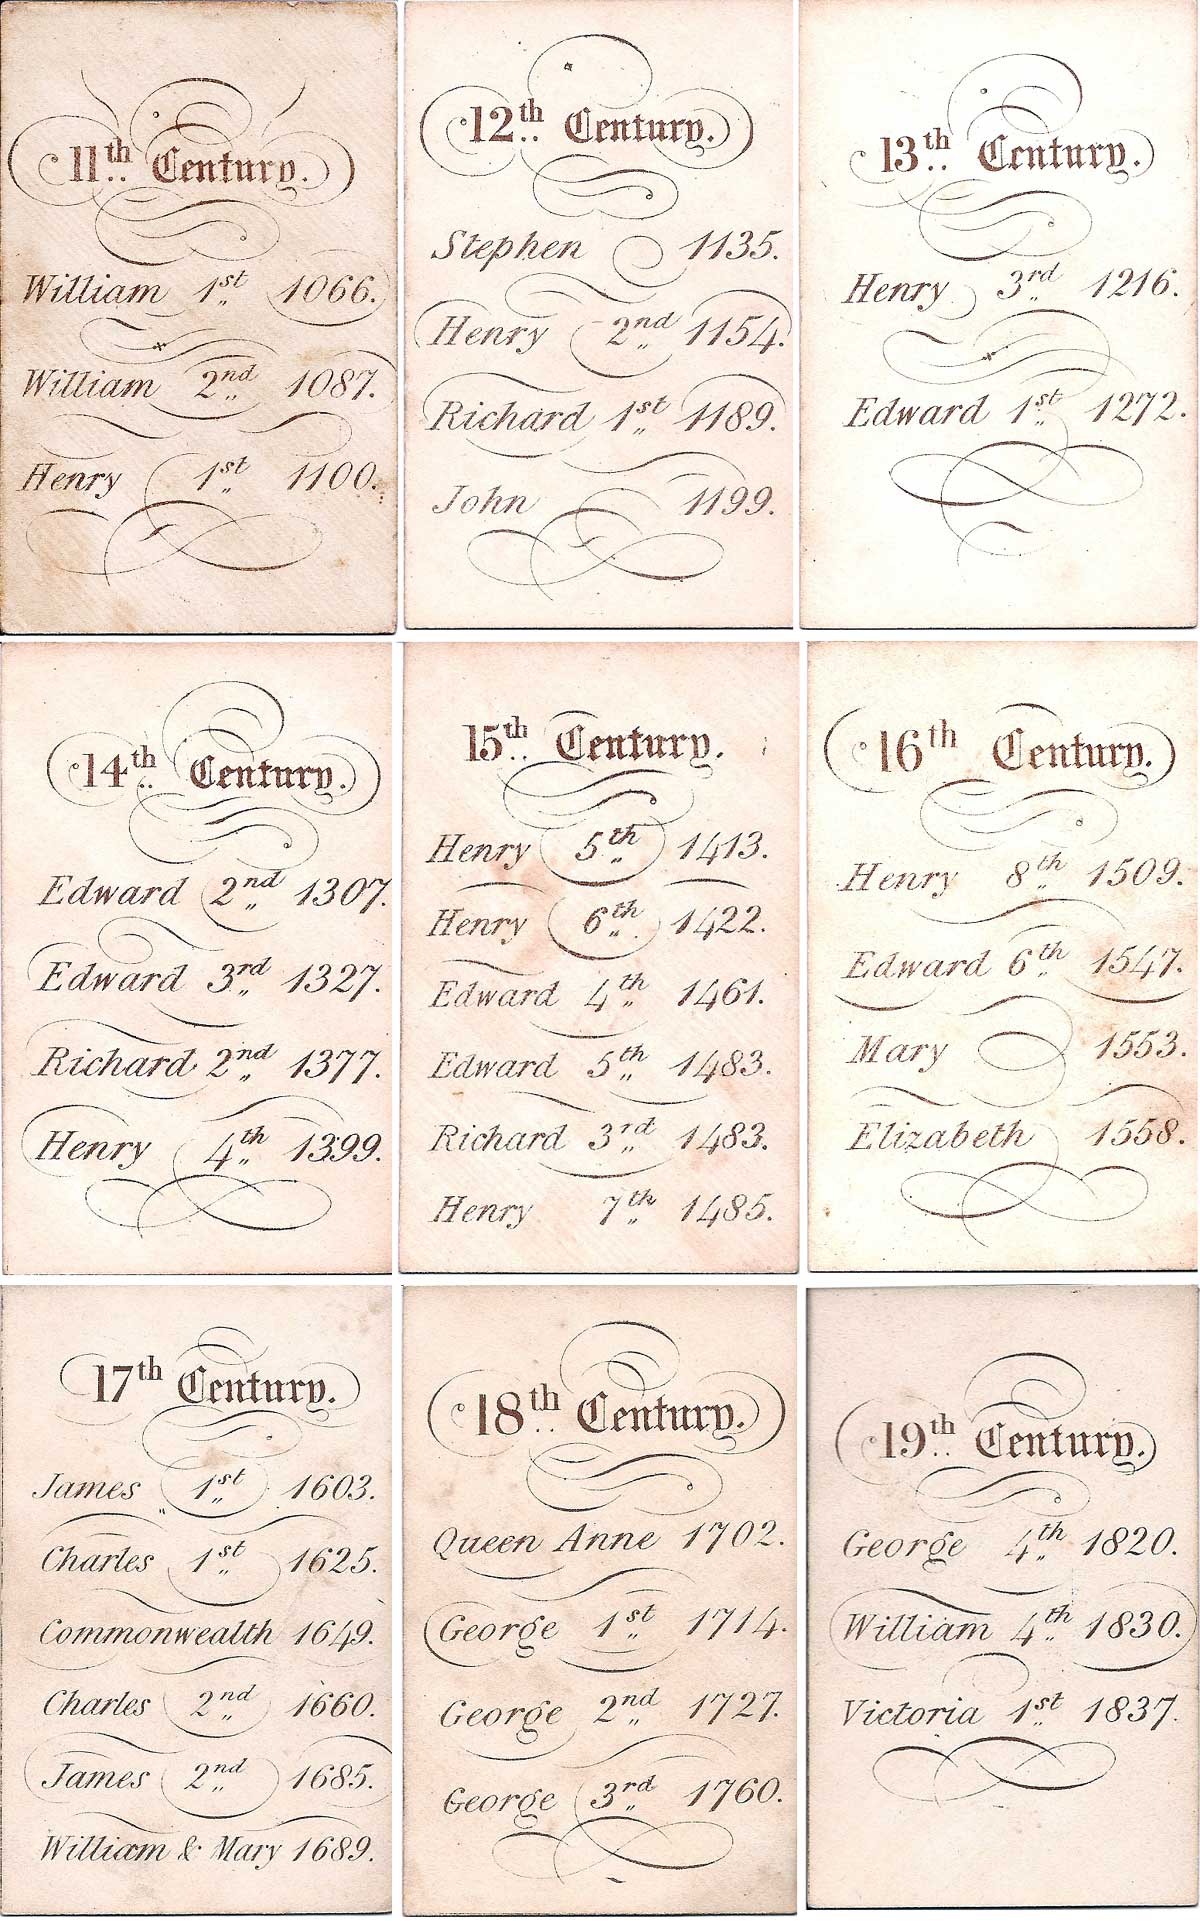 11th Century.
William 1st 1066.
William 2nd 1087.
Henry 1st 1100.
12th Century.
Stephen 1135.
Henry 2nd 1154.
Richard 1st 1189.
John 1199.
13th Century.
Henry 3rd 1216.
Edward 1st 1272.
14th Century.
Edward 2nd 1307.
Edward 3rd 1327.
Richard 2nd 1377.
Henry 4th 1399.
15th Century.
Henry 5th 1413.
Henry 6th 1422.
Edward 4th 1461.
Edward 5th 1483.
Richard 3rd 1483.
Henry 7th 1485.
16th Century.
Henry 8th 1509.
Edward 6th 1547.
Mary 1553.
Elizabeth 1558.
17th Century.
James 1st 1603.
Charles 1st 1625.
Commonwealth 1649.
Charles 2nd 1660.
James 2nd 1685.
William & Mary 1689.
18th Century.
Queen Anne 1702.
George 1st 1714.
George 2nd 1727.
George 3rd 1760.
19th Century.
George 4th 1820.
William 4th 1830.
Victoria 1st 1837.